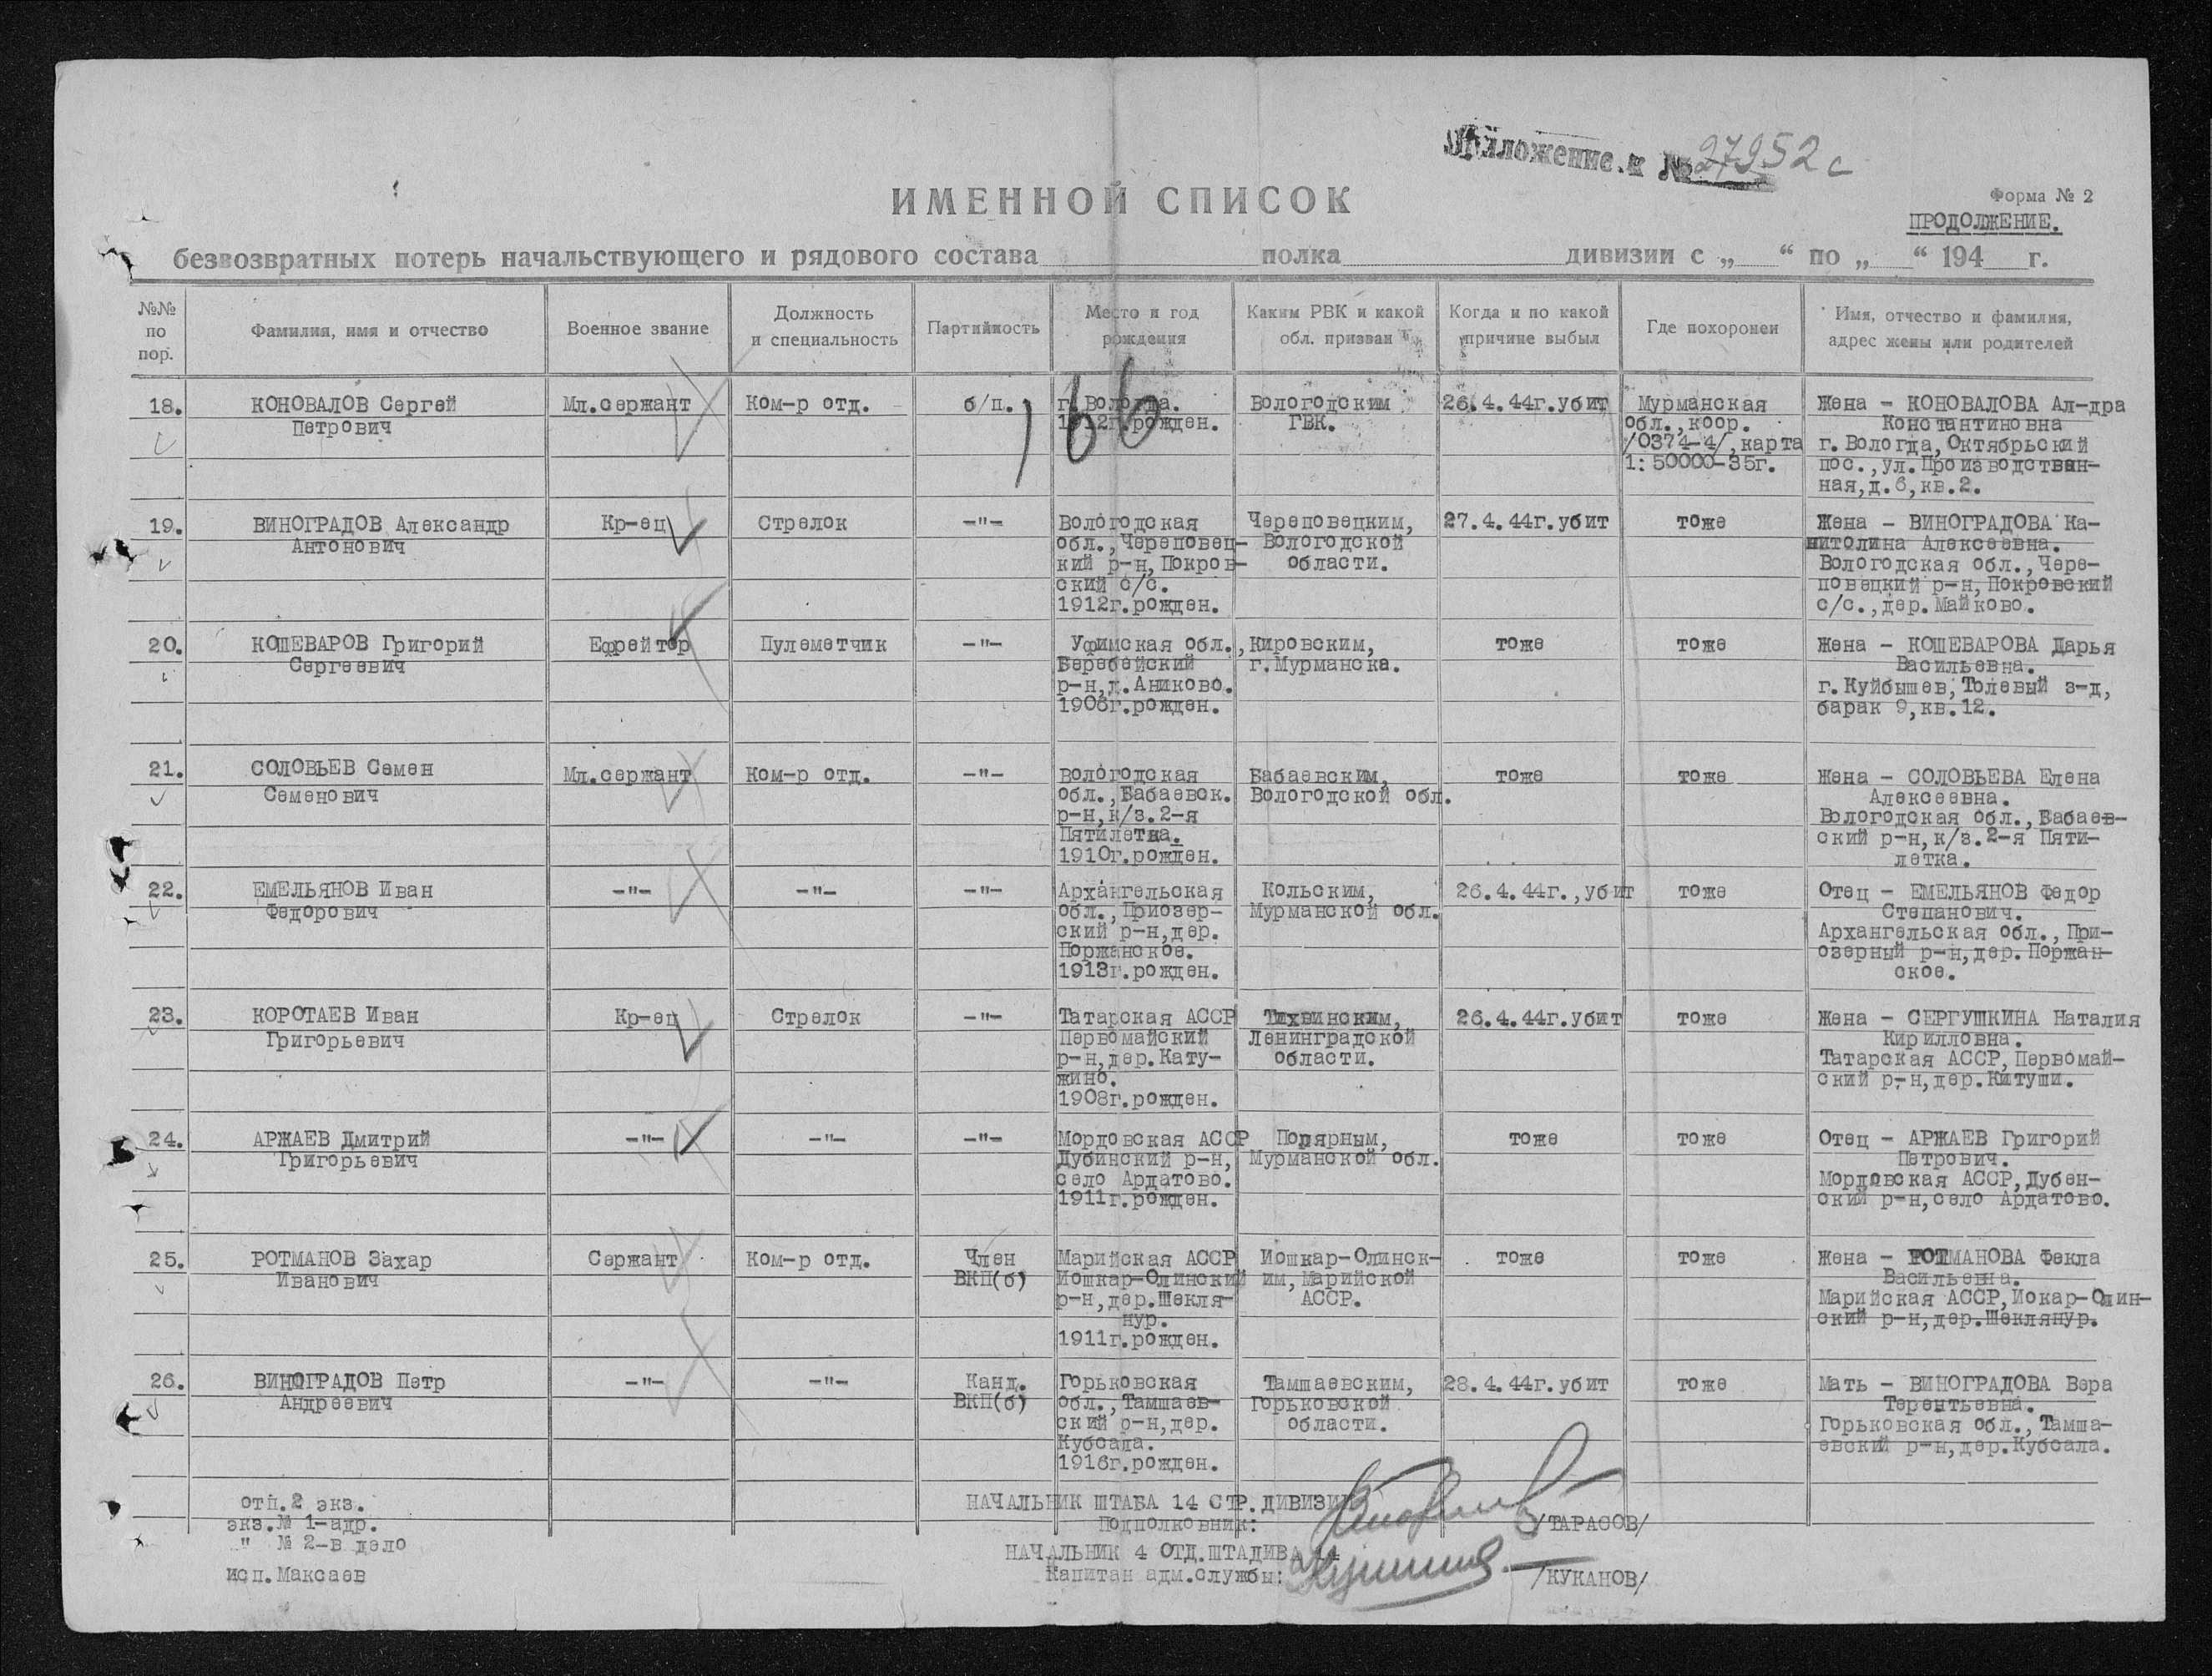 Приложение к № 27952с
ИМЕННОЙ СПИСОК
Форма № 2
ПРОДОЛЖЕНИЕ.
безвозвратных потерь начальствующего и рядового состава полка дивизии с „ “ по „ “ 194 г.
№№ по пор.
Фамилия, имя и отчество
Военное звание
Должность и специальность
Партийность
Место и год рождения
Каким РВК и какой обл. призван
Когда и по какой причине выбыл
Где похоронен
Имя, отчество и фамилия, адрес жены или родителей
166
18.
КОНОВАЛОВ Сергей
Петрович
Мл.сержант
Ком-р отд.
б/п.
г.Вологда.
1912г.рожден.
Вологодским
ГВК.
26.4.44г.убит
Мурманская
обл.,коор.
/0374-4/,карта
1:50000-35г.
Жена - КОНОВАЛОВА Ал-дра
Константиновна
г.Вологда,Октябрьский
пос.,ул.Производствен-
ная,д.6,кв.2.
19.
ВИНОГРАДОВ Александр
Антонович
Кр-ец
Стрелок
-"-
Вологодская
обл.,Череповец-
кий р-н,Покров-
ский с/с.
1912г.рожден.
Череповецким,
Вологодской
области.
27.4.44г.убит
тоже
Жена - ВИНОГРАДОВА Ка-
питолина Алексеевна.
Вологодская обл.,Чере-
повецкий р-н,Покровский
с/с.,дер.Майково.
20.
КОШЕВАРОВ Григорий
Сергеевич
Ефрейтор
Пулеметчик
-"-
Уфимская обл.,
Беребейский
р-н,д.Аниково.
1906г.рожден.
Кировским,
г.Мурманска.
тоже
тоже
Жена - КОШЕВАРОВА Дарья
Васильевна.
г.Куйбышев,Толевый з-д,
барак 9,кв.12.
21.
СОЛОВЬЕВ Семен
Семенович
Мл.сержант
Ком-р отд.
-"-
Вологодская
обл.,Бабаевск.
р-н,к/з.2-я
Пятилетка.
1910г.рожден.
Бабаевским,
Вологодской обл.
тоже
тоже
Жена - СОЛОВЬЕВА Елена
Алексеевна.
Вологодская обл.,Бабаев-
ский р-н,к/з.2-я Пяти-
летка.
22.
ЕМЕЛЬЯНОВ Иван
Федорович
-"-
-"-
-"-
Архангельская
обл.,Приозер-
ский р-н,дер.
Поржанское.
1913г.рожден.
Кольским,
Мурманской обл.
26.4.44г.,убит
тоже
Отец - ЕМЕЛЬЯНОВ Федор
Степанович.
Архангельская обл.,При-
озерный р-н,дер.Поржан-
ское.
23.
КОРОТАЕВ Иван
Григорьевич
Кр-ец
Стрелок
-"-
Татарская АССР
Первомайский
р-н,дер.Кату-
жино.
1908г.рожден.
Тихвинским,
Ленинградской
области.
26.4.44г.убит
тоже
Жена - СЕРГУШКИНА Наталия
Кирилловна.
Татарская АССР,Первомай-
ский р-н,дер.Китуши.
24.
АРЖАЕВ Дмитрий
Григорьевич
-"-
-"-
-"-
Мордовская АССР
Дубинский р-н,
село Ардатово.
1911г.рожден.
Полярным,
Мурманской обл.
тоже
тоже
Отец - АРЖАЕВ Григорий
Петрович.
Мордовская АССР,Дубен-
ский р-н,село Ардатово.
25.
РОТМАНОВ Захар
Иванович
Сержант
Ком-р отд.
Член
ВКП(б)
Марийская АССР
Иошкар-Олинский
р-н,дер.Шекля-
нур.
1911г.рожден.
Иошкар-Олинск-
им,Марийской
АССР.
тоже
тоже
Жена - РОТМАНОВА Фекла
Васильевна.
Марийская АССР,Иокар-Олин-
ский р-н,дер.Шеклянур.
26.
ВИНОГРАДОВ Петр
Андреевич
-"-
-"-
Канд.
ВКП(б)
Горьковская
обл.,Тамшаев-
ский р-н,дер.
Кубсала.
1916г.рожден.
Тамшаевским,
Горьковской
области.
28.4.44г.убит
тоже
Мать - ВИНОГРАДОВА Вера
Терентьевна.
Горьковская обл.,Тамша-
евский р-н,дер.Кубсала.
отп.2 экз.
экз.№ 1-адр.
" № 2-в дело
исп.Максаев
НАЧАЛЬНИК ШТАБА 14 СТР.ДИВИЗИИ
Подполковник:
/ТАРАСОВ/
НАЧАЛЬНИК 4 ОТД.ШТАДИВА 14
Капитан адм.службы:
/КУКАНОВ/